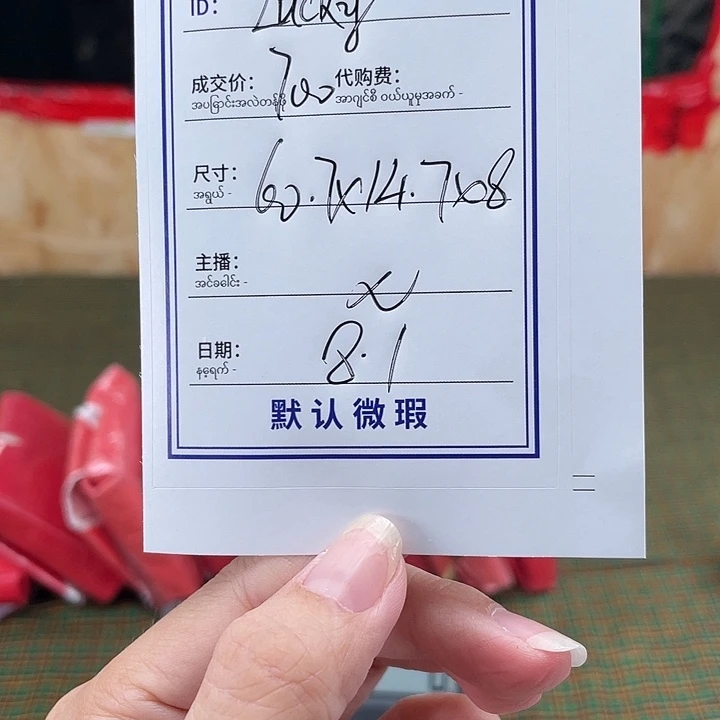 ID: Lucky
成交价: 700 代购费:
အပြောင်းအလဲတန်ဖိုး အာဂျင်စီ ဝယ်ယူမှုအခက် -
尺寸: 60.7x14.7x8
အရွယ် -
主播:
အင်ခင်ေါး -
日期: 8.1
နေ့ရက် -
默认微瑕